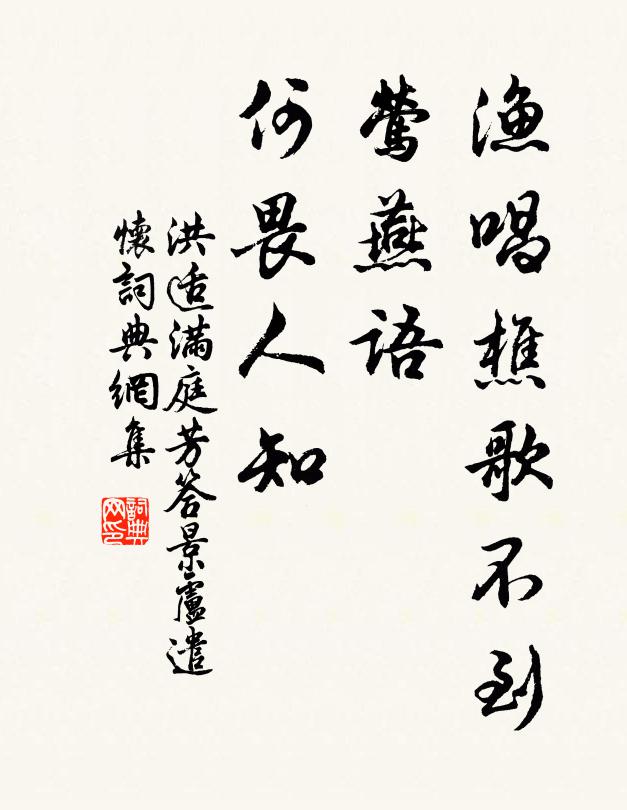 漁唱樵歌不到
鶯燕語
何畏人知
洪适滿庭芳答景盧遣
懷詞典網集
詞典
网印